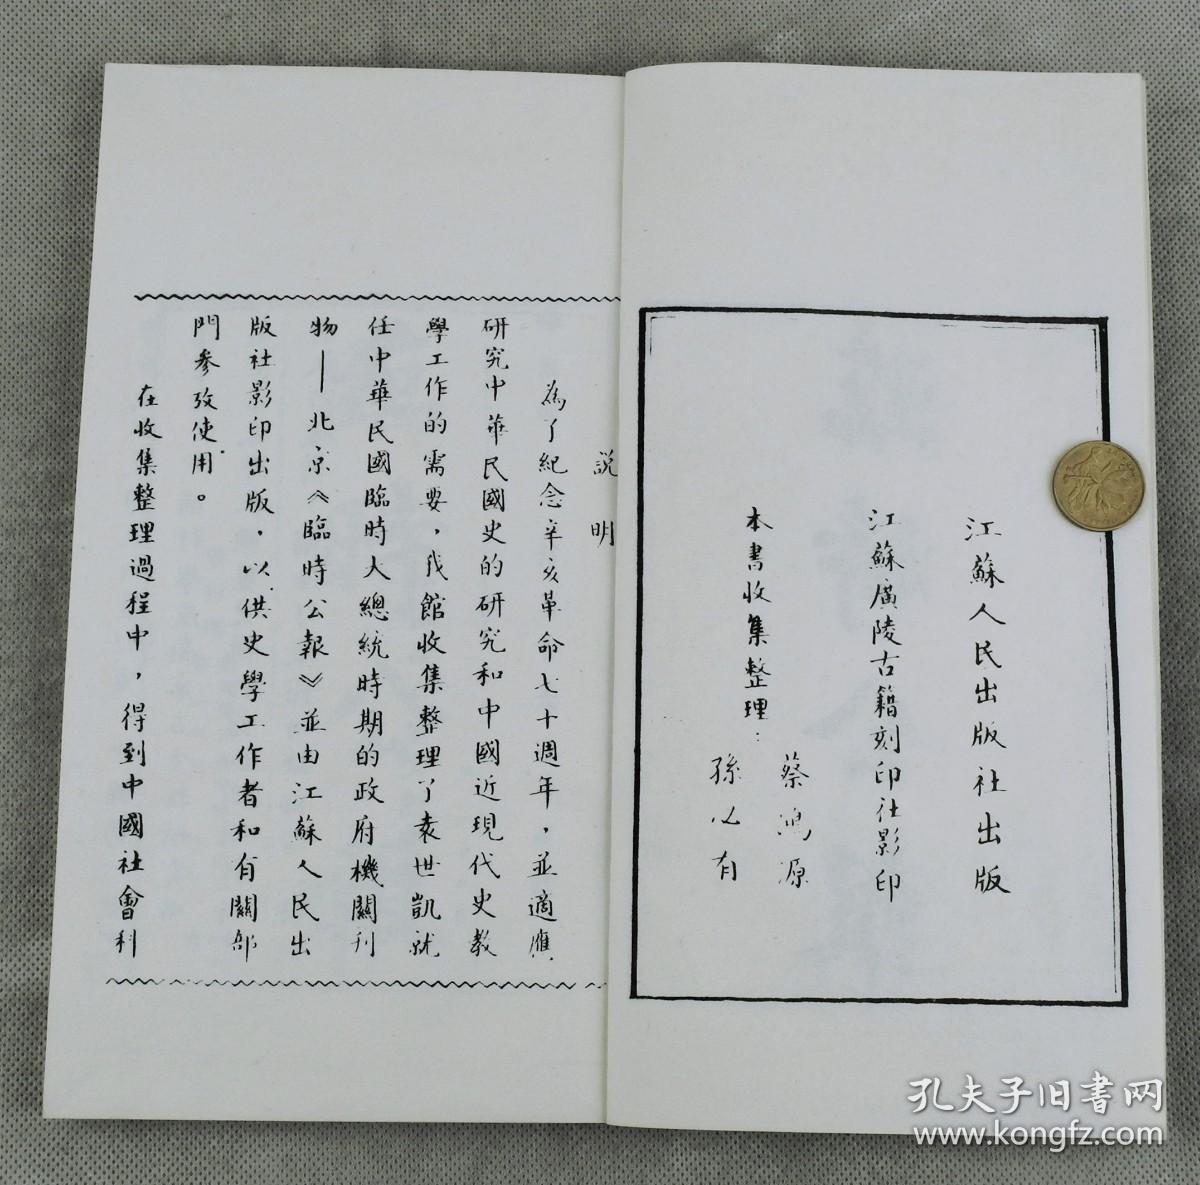 江蘇人民出版社出版
江蘇廣陵古籍刻印社影印
本書收集整理：
蔡鴻源
孫必有
說明
為了紀念辛亥革命七十週年，並適應
研究中華民國史的研究和中國近現代史教
學工作的需要，我館收集整理了袁世凱就
任中華民國臨時大總統時期的政府機關刊
物——北京《臨時公報》並由江蘇人民出
版社影印出版，以供史學工作者和有關部
門參攷使用。
在收集整理過程中，得到中國社會科
孔夫子旧书网
www.kongfz.com